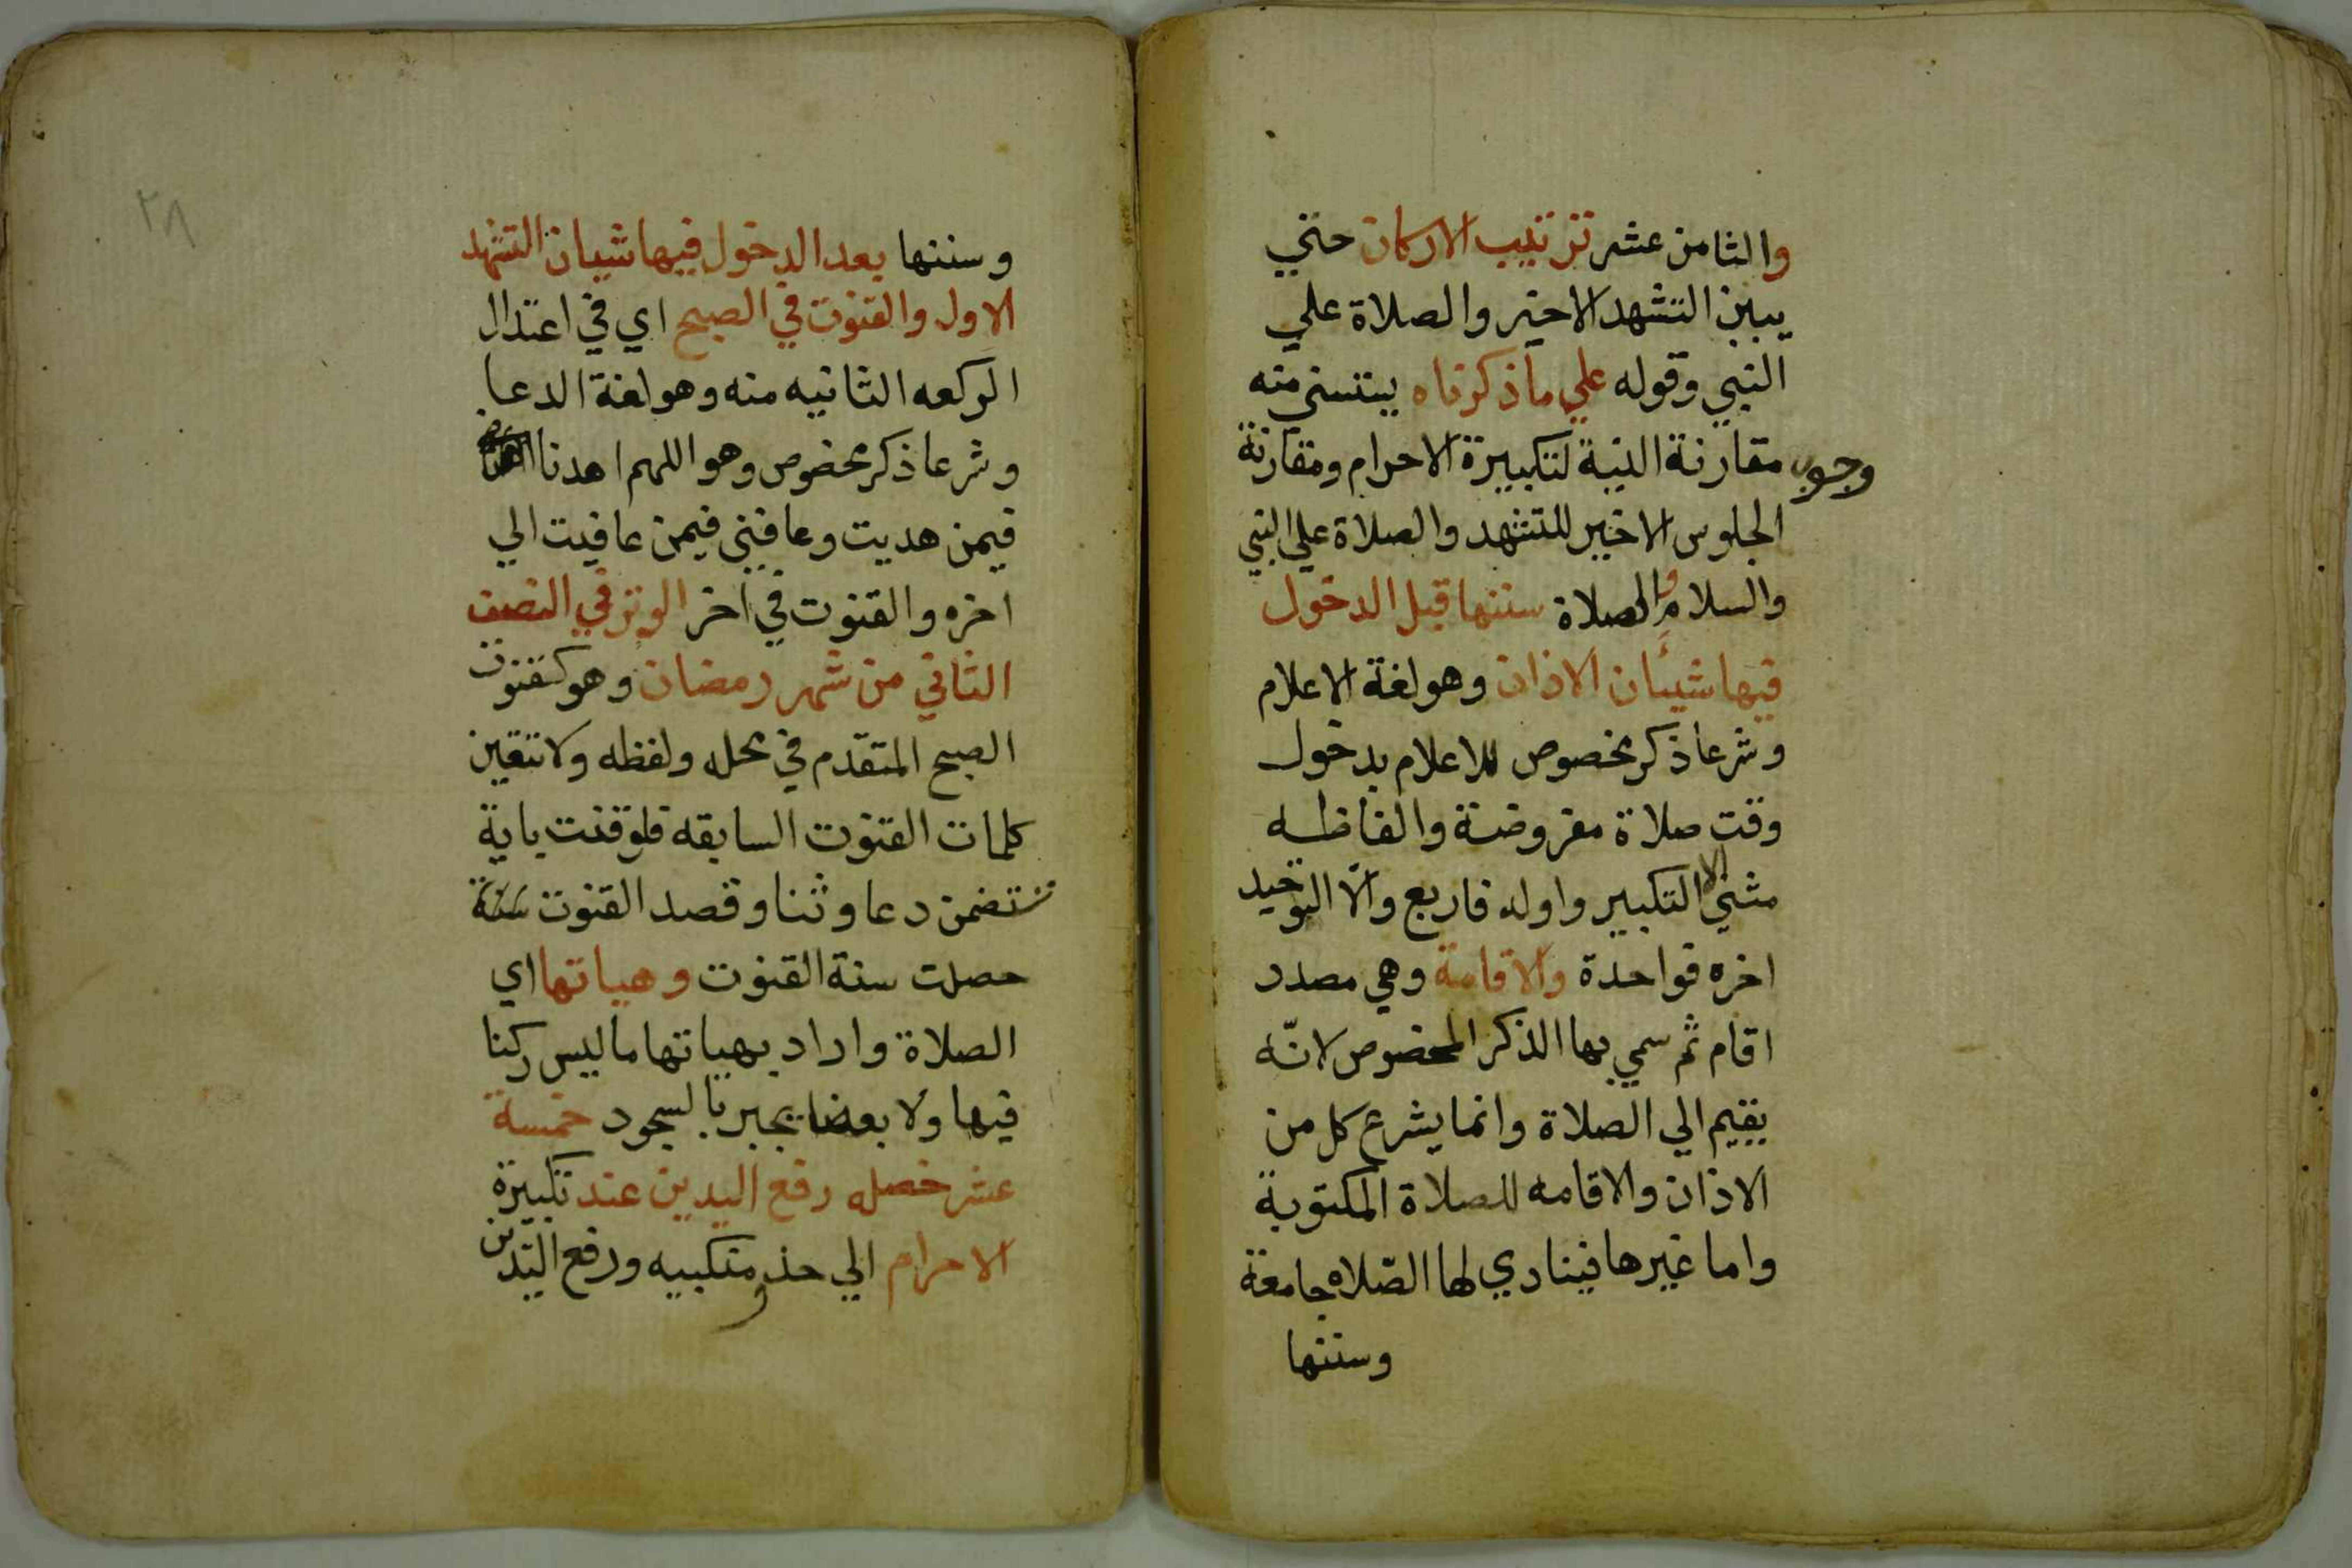 والثامن عشر ترتيب الاركان حتي
يبين التشهد الاخير والصلاة علي
النبي وقوله علي ما ذكرناه يستثني منه
وجوب مقارنة النية لتكبيرة الاحرام ومقارنة
الجلوس الاخير للتشهد والصلاة علي النبي
والسلام والصلاة سننها قبل الدخول
فيها شيئان الاذان وهو لغة الاعلام
وشرعا ذكر مخصوص للاعلام بدخول
وقت صلاة مفروضة والفاظه
مثني الا التكبير اوله فاربع والا التوحيد
اخره فواحدة والاقامة وهي مصدر
اقام ثم سمي بها الذكر المخصوص لانّه
يقيم الي الصلاة وانما يشرع كل من
الاذان والاقامه للصلاة المكتوبة
واما غيرها فينادي لها الصّلاه جامعة
وسننها
٢٨
وسننها بعد الدخول فيها شيان التشهد
الاول والقنوت في الصبح اي في اعتدال
الركعه الثانيه منه وهو لغة الدعا
وشرعا ذكر مخصوص وهو اللهم اهدنا
فيمن هديت وعافني فيمن عافيت الي
اخره والقنوت في اخر الوتر في النصف
الثاني من شهر رمضان وهو كقنوت
الصبح المتقدم في محله ولفظه ولا تتعين
كلمات القنوت السابقه فلو قنت باية
تتضمن دعا وثنا وقصد القنوت سنة
حصلت سنة القنوت وهياتها اي
الصلاة واراد بهياتها ما ليس ركنا
فيها ولا بعضا يجبر بالسجود خمسة
عشر خصله رفع اليدين عند تكبيرة
الاحرام الي حذو منكبيه ورفع اليدين